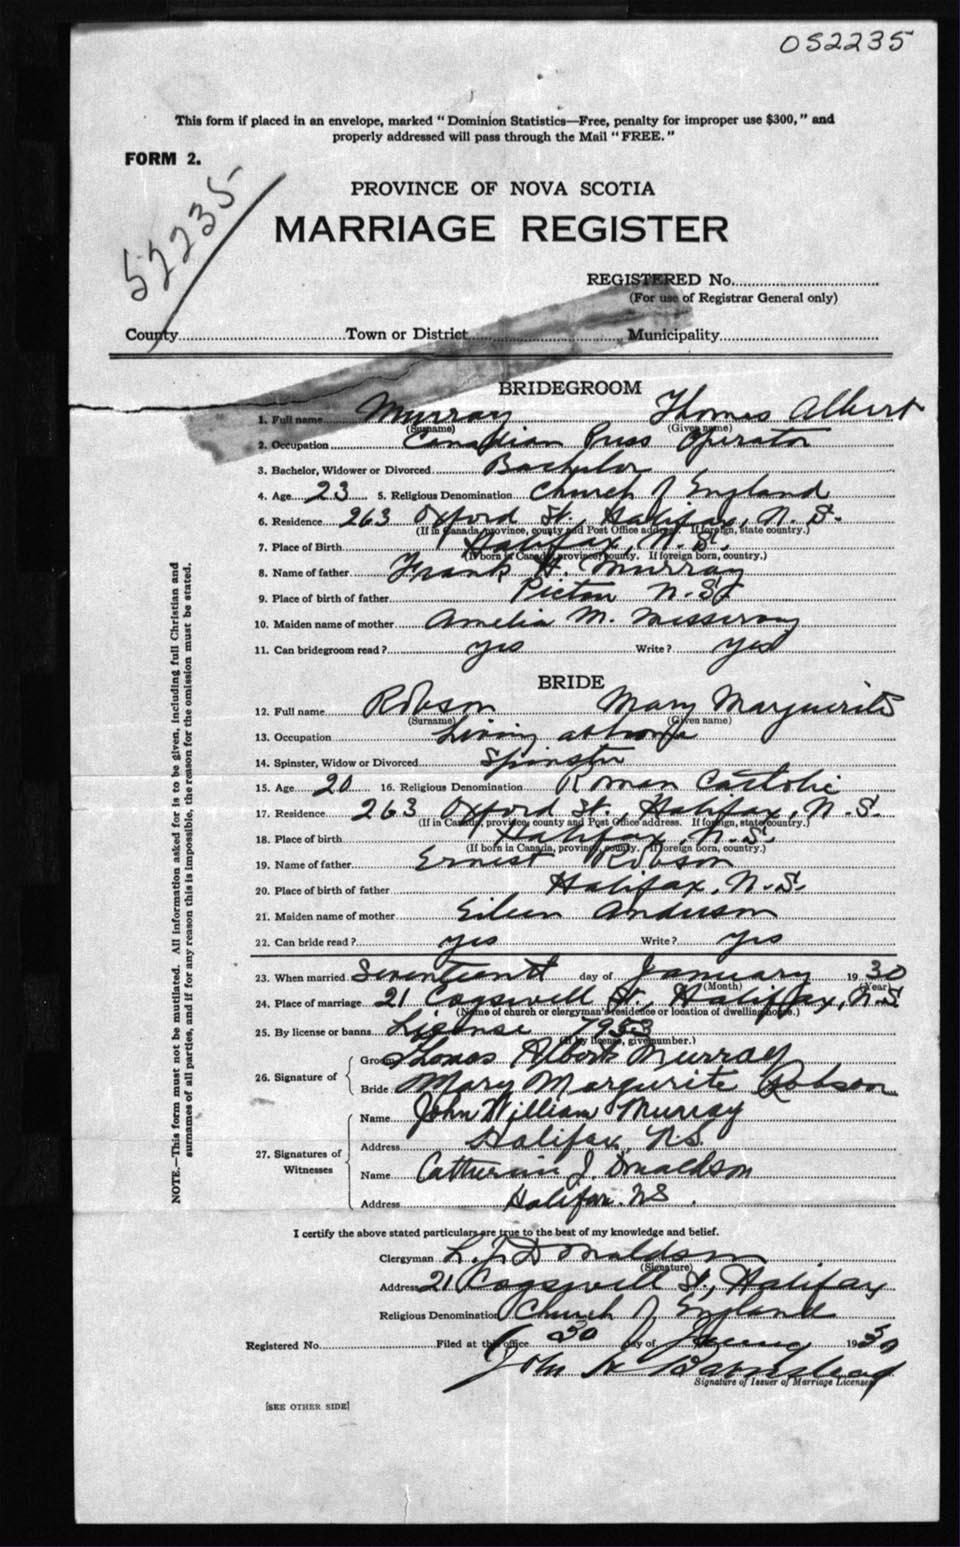 052235
This form if placed in an envelope, marked "Dominion Statistics—Free, penalty for improper use $300," and
properly addressed will pass through the Mail "FREE."
FORM 2.
52235
PROVINCE OF NOVA SCOTIA
MARRIAGE REGISTER
REGISTERED No.
(For use of Registrar General only)
County Town or District Municipality
BRIDEGROOM
1. Full name Murray Thomas Albert
(Surname) (Given name)
2. Occupation Canadian Press Operator
3. Bachelor, Widower or Divorced Bachelor
4. Age 23 5. Religious Denomination Church of England
6. Residence 263 Oxford St., Halifax, N.S.
(If in Canada, province, county and Post Office address. If foreign, state country.)
7. Place of Birth Halifax, N.S.
(If born in Canada, province, county. If foreign born, country.)
8. Name of father Frank H. Murray
9. Place of birth of father Pictou N.S.
10. Maiden name of mother Amelia M.
11. Can bridegroom read? yes Write? yes
BRIDE
12. Full name Robson Mary Marguerite
(Surname) (Given name)
13. Occupation Living at home
14. Spinster, Widow or Divorced Spinster
15. Age 20 16. Religious Denomination Roman Catholic
17. Residence 263 Oxford St., Halifax, N.S.
(If in Canada, province, county and Post Office address. If foreign, state country.)
18. Place of birth Halifax, N.S.
(If born in Canada, province, county. If foreign born, country.)
19. Name of father Ernest Robson
20. Place of birth of father Halifax, N.S.
21. Maiden name of mother Eileen Anderson
22. Can bride read? yes Write? yes
23. When married Seventeenth day of January 1930
(Month) (Year)
24. Place of marriage 21 Cogswell St., Halifax, N.S.
(Name of church or clergyman's residence or location of dwelling house.)
25. By license or banns License 7953
(If by license, give number.)
26. Signature of
Groom Thomas Albert Murray
Bride Mary Margurite Robson
27. Signatures of Witnesses
Name John William Murray
Address Halifax N.S.
Name Catherine J. Donaldson
Address Halifax. N.S.
I certify the above stated particulars are true to the best of my knowledge and belief.
Clergyman L. J. Donaldson
(Signature)
Address 21 Cogswell St., Halifax
Religious Denomination Church of England
Registered No. Filed at this office 30 day of 1930
John H Barnstead
Signature of Issuer of Marriage Licenses
[SEE OTHER SIDE]
NOTE.—This form must not be mutilated. All information asked for is to be given, including full Christian and
surnames of all parties, and if for any reason this is impossible, the reason for the omission must be stated.